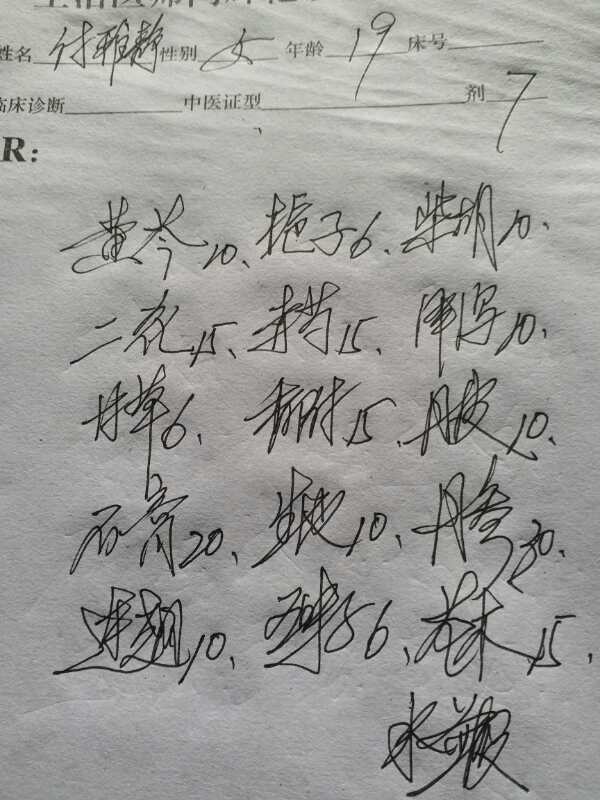 姓名 付雅静 性别 女 年龄 19 床号
临床诊断 中医证型 剂 7
R:
黄芩10、栀子6、柴胡10、
二花15、赤芍15、泽泻10、
甘草6、香附15、丹皮10、
石膏20、生地10、丹参30、
连翘10、子6、15、
水煎服